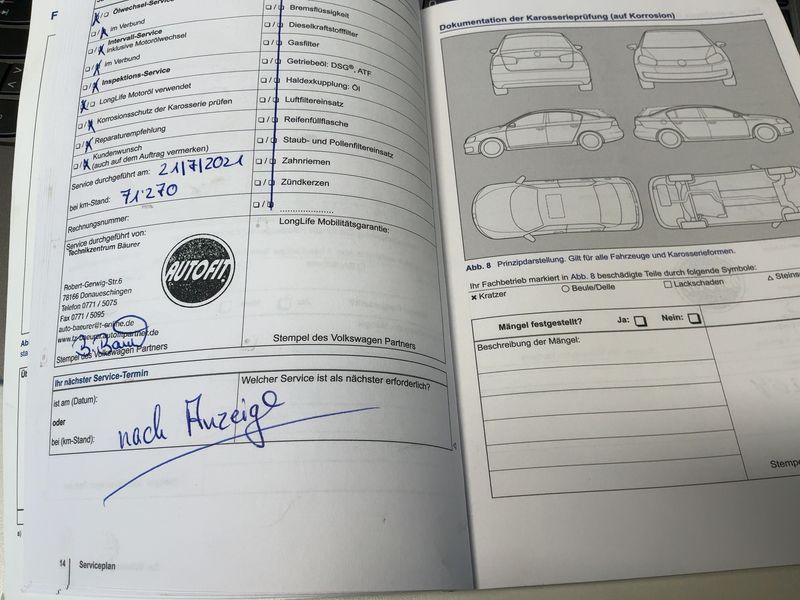 F
Ölwechsel-Service
Im Verbund
Intervall-Service
inklusive Motorölwechsel
Im Verbund
Inspektions-Service
LongLife Motoröl verwendet
Korrosionsschutz der Karosserie prüfen
Reparaturempfehlung
Kundenwunsch
(auch auf dem Auftrag vermerken)
Service durchgeführt am: 21/7/2021
bei km-Stand: 71.270
Rechnungsnummer:
Service durchgeführt von:
Technikzentrum Bäurer
AUTOFIT
Robert-Gerwig-Str.6
78166 Donaueschingen
Telefon 0771 / 5075
Fax 0771 / 5095
auto-baeurer@t-online.de
www.tz-baeurer.autofitpartner.de
Stempel des Volkswagen Partners
Bremsflüssigkeit
Dieselkraftstofffilter
Gasfilter
Getriebeöl: DSG®, ATF
Haldexkupplung: Öl
Luftfiltereinsatz
Reifenfüllflasche
Staub- und Pollenfiltereinsatz
Zahnriemen
Zündkerzen
LongLife Mobilitätsgarantie:
Stempel des Volkswagen Partners
Ihr nächster Service-Termin
ist am (Datum):
oder
bei (km-Stand):
Welcher Service ist als nächster erforderlich?
nach Anzeige
14 Serviceplan
Dokumentation der Karosserieprüfung (auf Korrosion)
Abb. 8 Prinzipdarstellung. Gilt für alle Fahrzeuge und Karosserieformen.
Ihr Fachbetrieb markiert in Abb. 8 beschädigte Teile durch folgende Symbole:
Kratzer Beule/Delle Lackschaden
Mängel festgestellt? Ja: Nein:
Beschreibung der Mängel: